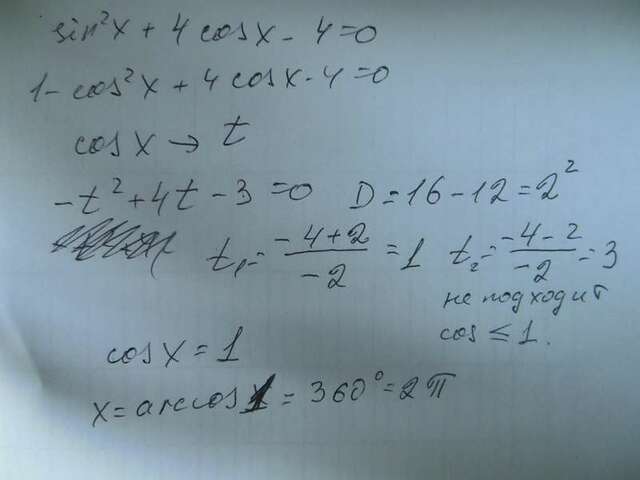 sin²x + 4 cosx - 4 = 0
1 - cos²x + 4 cosx - 4 = 0
cosx → t
-t² + 4t - 3 = 0 D = 16 - 12 = 2²
t₁ = (-4+2)/(-2) = 1 t₂ = (-4-2)/(-2) = 3
не подходит
cos ≤ 1.
cosx = 1
x = arccos1 = 360° = 2π